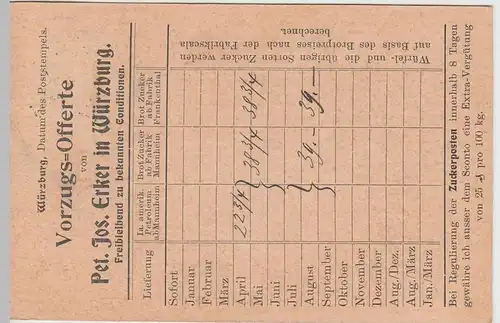 Würzburg, Datum des Poststempels.
Vorzugs=Offerte
von
Pet. Jos. Erker in Würzburg.
Freibleibend zu bekannten Conditionen.
Lieferung
Ia. amerik.
Petroleum
ab Mannheim
Brot Zucker
ab Fabrik
Mannheim
Brot Zucker
ab Fabrik
Frankenthal
Sofort
Januar
Februar
März
April 22 3/4
Mai 38 3/4 38 3/4
Juni
Juli
August 39.- 39.-
September
Oktober
November
Dezember
Aug./Dez.
Aug./März
Jan./März
Würfel- und die übrigen Sorten Zucker werden
auf Basis des Brotpreises nach der Fabrikscala
berechnet.
Bei Regulierung der Zuckerposten innerhalb 8 Tagen
gewähre ich ausser dem Sconto eine Extra-Vergütung
von 25 ₰ pro 100 kg.